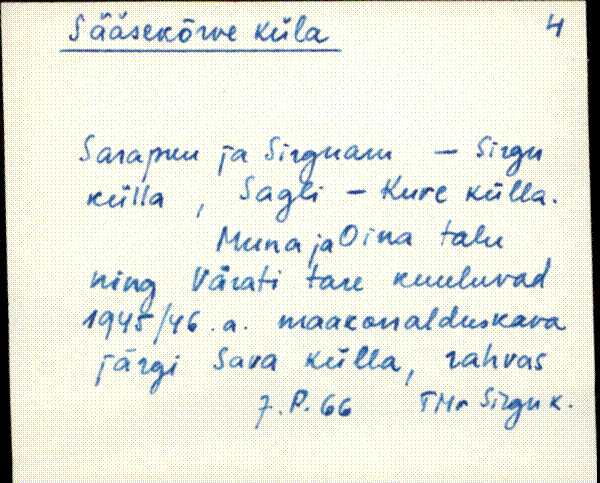 Sääsekõrve küla 4
Sarapuu ja Sirgnaru – Sirgu
külla, Sagli – Kure külla.
Muna ja Oina talu
ning Värati tare kuuluvad
1945/46.a. maakorralduskava
järgi Sava külla, rahvas
7.P.66 TMr Sirgu k.